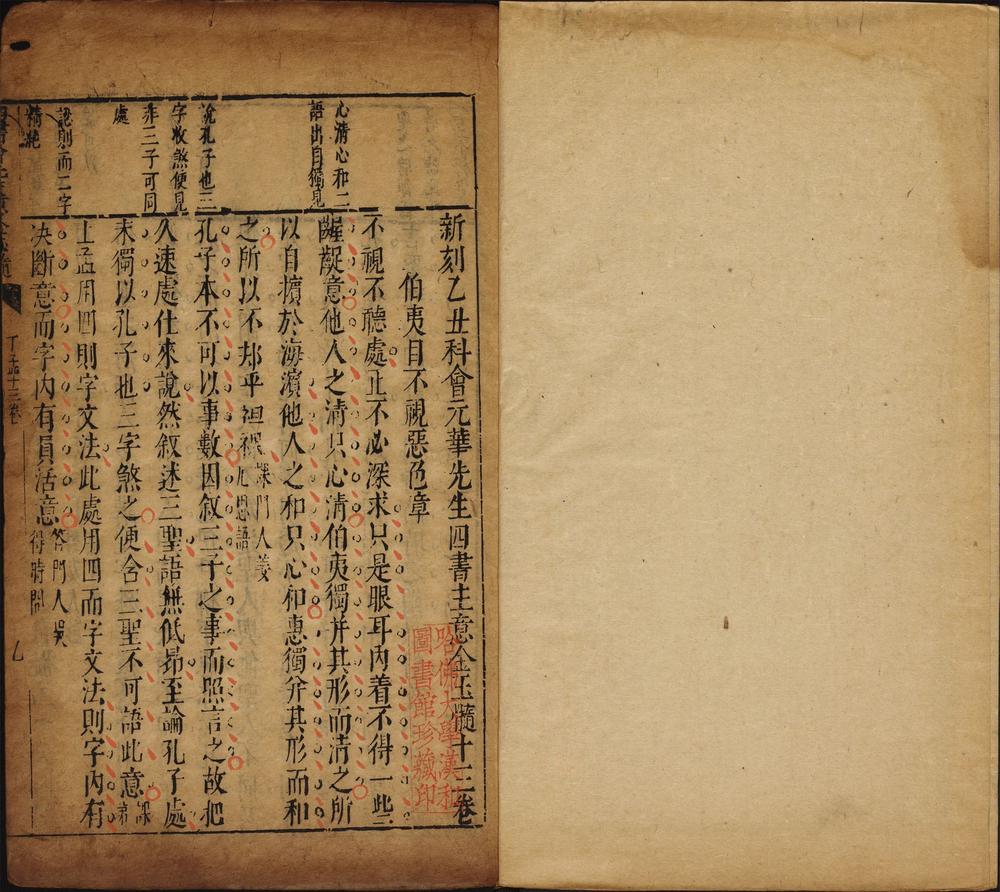 新刻乙丑科會元華先生四書主意金玉髓十三卷
伯夷目不視惡色章
不視不聽處止不必深求只是眼耳內着不得一些
齷齪意他人之清只心清伯夷獨并其形而清之所
以自擴於海濱他人之和只心和惠獨并其形而和
之所以不却乎袒裸
課門人姜
尼思語
孔子本不可以事數因叙三子之事而照言之故把
久速處仕來說然叙述三聖語無低昂至論孔子處
末獨以孔子也三字煞之便含三聖不可語此意
上孟用四則字文法此處用四而字文法則字內有
决斷意而字內有員活意
答門人吳
得時問
心清心和二
語出自獨見
說孔子也三
字收煞便見
非三子可同
處
認則而二字
精絕
下孟十三卷
哈佛大學漢和
圖書館珍藏印